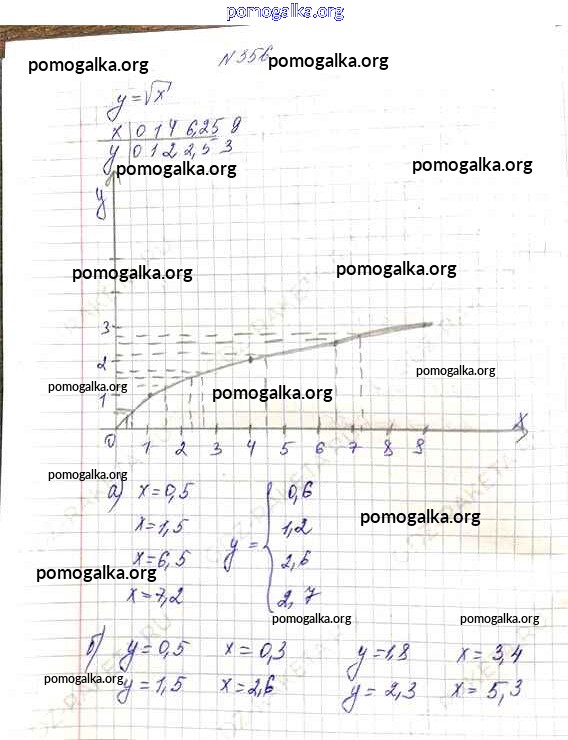 pomogalka.org
N 356
pomogalka.org pomogalka.org
y = √x
x 0 1 4 6,25 9
y 0 1 2 2,5 3
pomogalka.org pomogalka.org
y
pomogalka.org pomogalka.org
3
2
pomogalka.org
pomogalka.org
1
pomogalka.org
x
0 1 2 3 4 5 6 7 8 9
pomogalka.org
а) x = 0,5 y = { 0,6
x = 1,5 1,2
pomogalka.org
x = 6,5 2,6
pomogalka.org
x = 7,2 2,7
pomogalka.org pomogalka.org
б) y = 0,5 x = 0,3 y = 1,8 x = 3,4
pomogalka.org
y = 1,5 x = 2,6 y = 2,3 x = 5,3
pomogalka.org